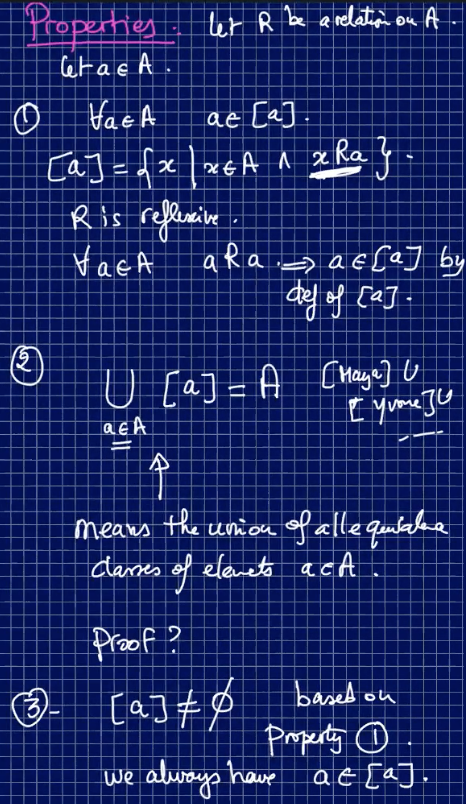 Properties : Let R be a relation on A .
Let a ∈ A .
① ∀a∈A a∈ [a] .
[a] = { x | x∈A ∧ xRa } .
R is reflexive .
∀a∈A aRa . ⟹ a∈[a] by
def of [a] .
② ⋃ [a] = A [Maya] ∪
a∈A [Yvone] ∪
↑
means the union of all equivalence
classes of elements a∈A .
Proof ?
③- [a] ≠ ∅ based on
Property ① .
we always have a∈[a] .